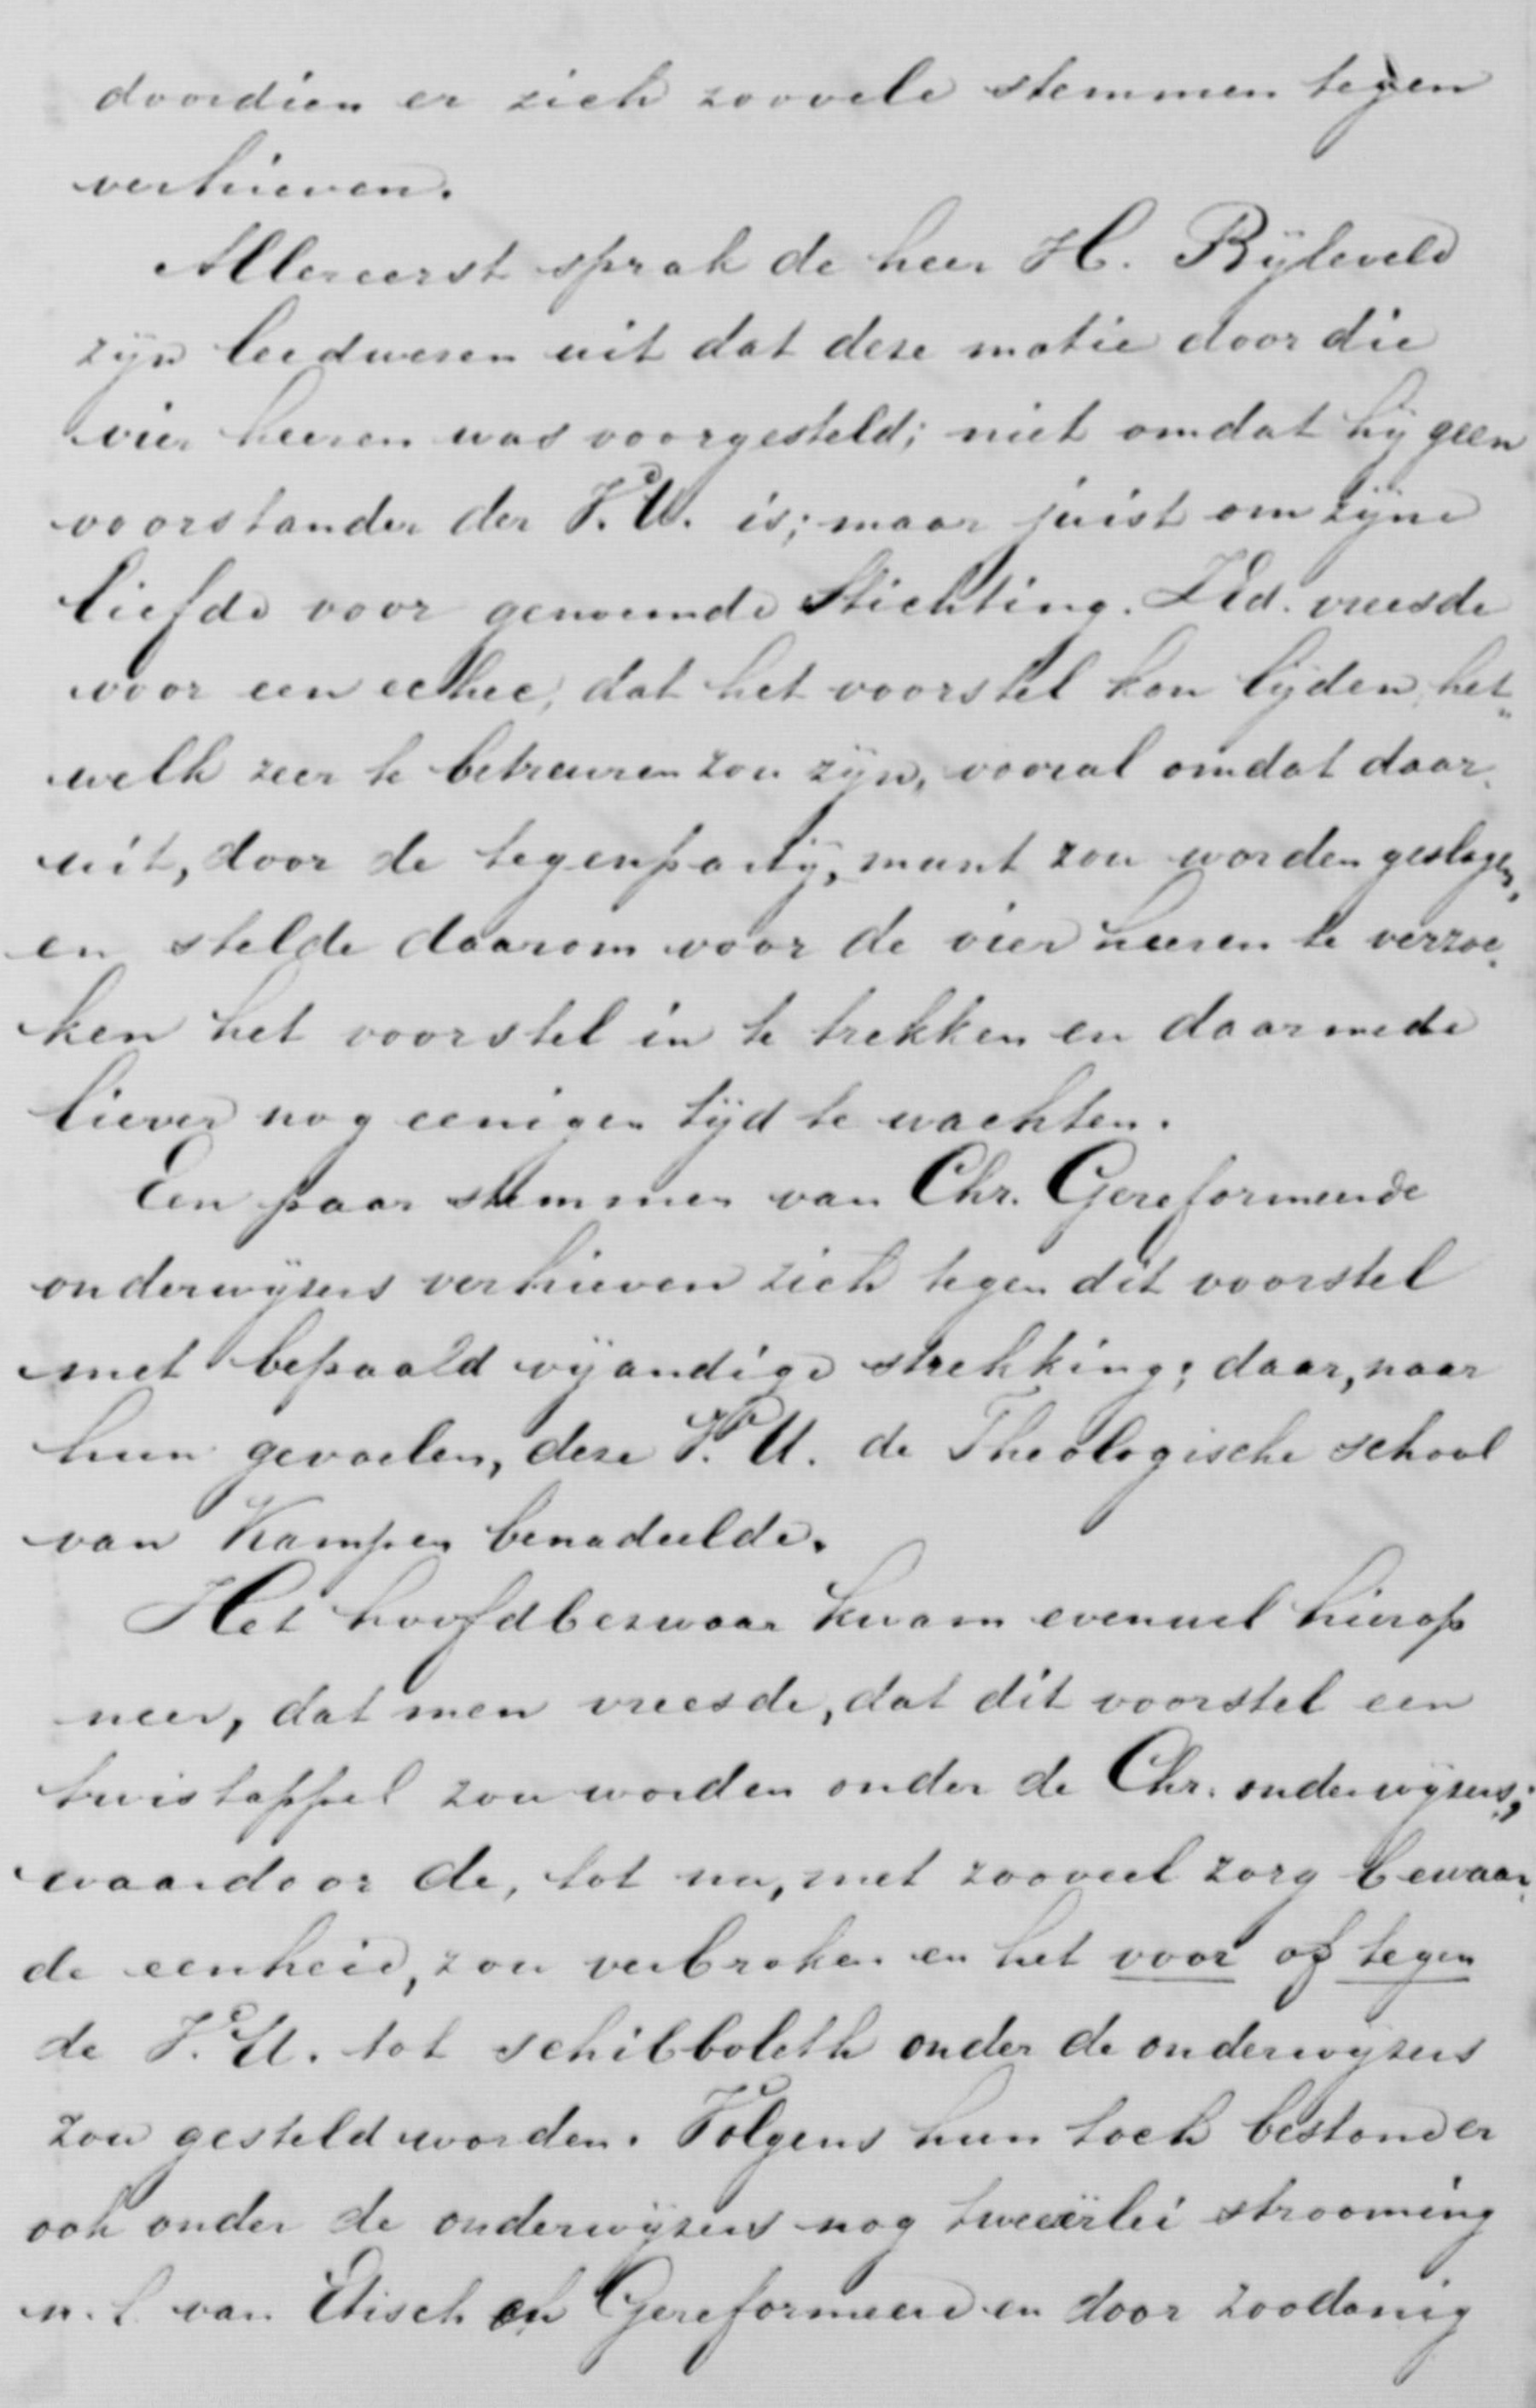 doordien er zich zoovele stemmen tegen
verhieven.
Allereerst sprak de heer H. Bijleveld
zijn leedwezen uit dat deze motie door die
vier heeren was voorgesteld; niet omdat hij geen
voorstander der V.U. is; maar juist om zijne
liefde voor genoemde Stichting. ZEd. vreesde
voor een echec, dat het voorstel kon lijden, het„
welk zeer te betreuren zou zijn, vooral omdat daar„
uit, door de tegenpartij, munt zou worden geslagen,
en stelde daarom voor de vier heeren te verzoe„
ken het voorstel in te trekken en daarmede
liever nog eenigen tijd te wachten.
Een paar stemmen van Chr. Gereformeerde
onderwijzers verhieven zich tegen dit voorstel
met bepaald vijandige strekking; daar, naar
hun gevoelen, deze V.U. de Theologische school
van Kampen benadeelde.
Het hoofdbezwaar kwam evenwel hierop
neer, dat men vreesde, dat dit voorstel een
twistappel zou worden onder de Chr. onderwijzers;
waardoor de, tot nu, met zooveel zorg bewaar„
de eenheid, zou verbroken en het voor of tegen
de V.U. tot schibboleth onder de onderwijzers
zou gesteld worden. Volgens hun toch bestond er
ook onder de onderwijzers nog tweeërlei strooming
n.l. van Etisch en Gereformeerd en door zoodanig